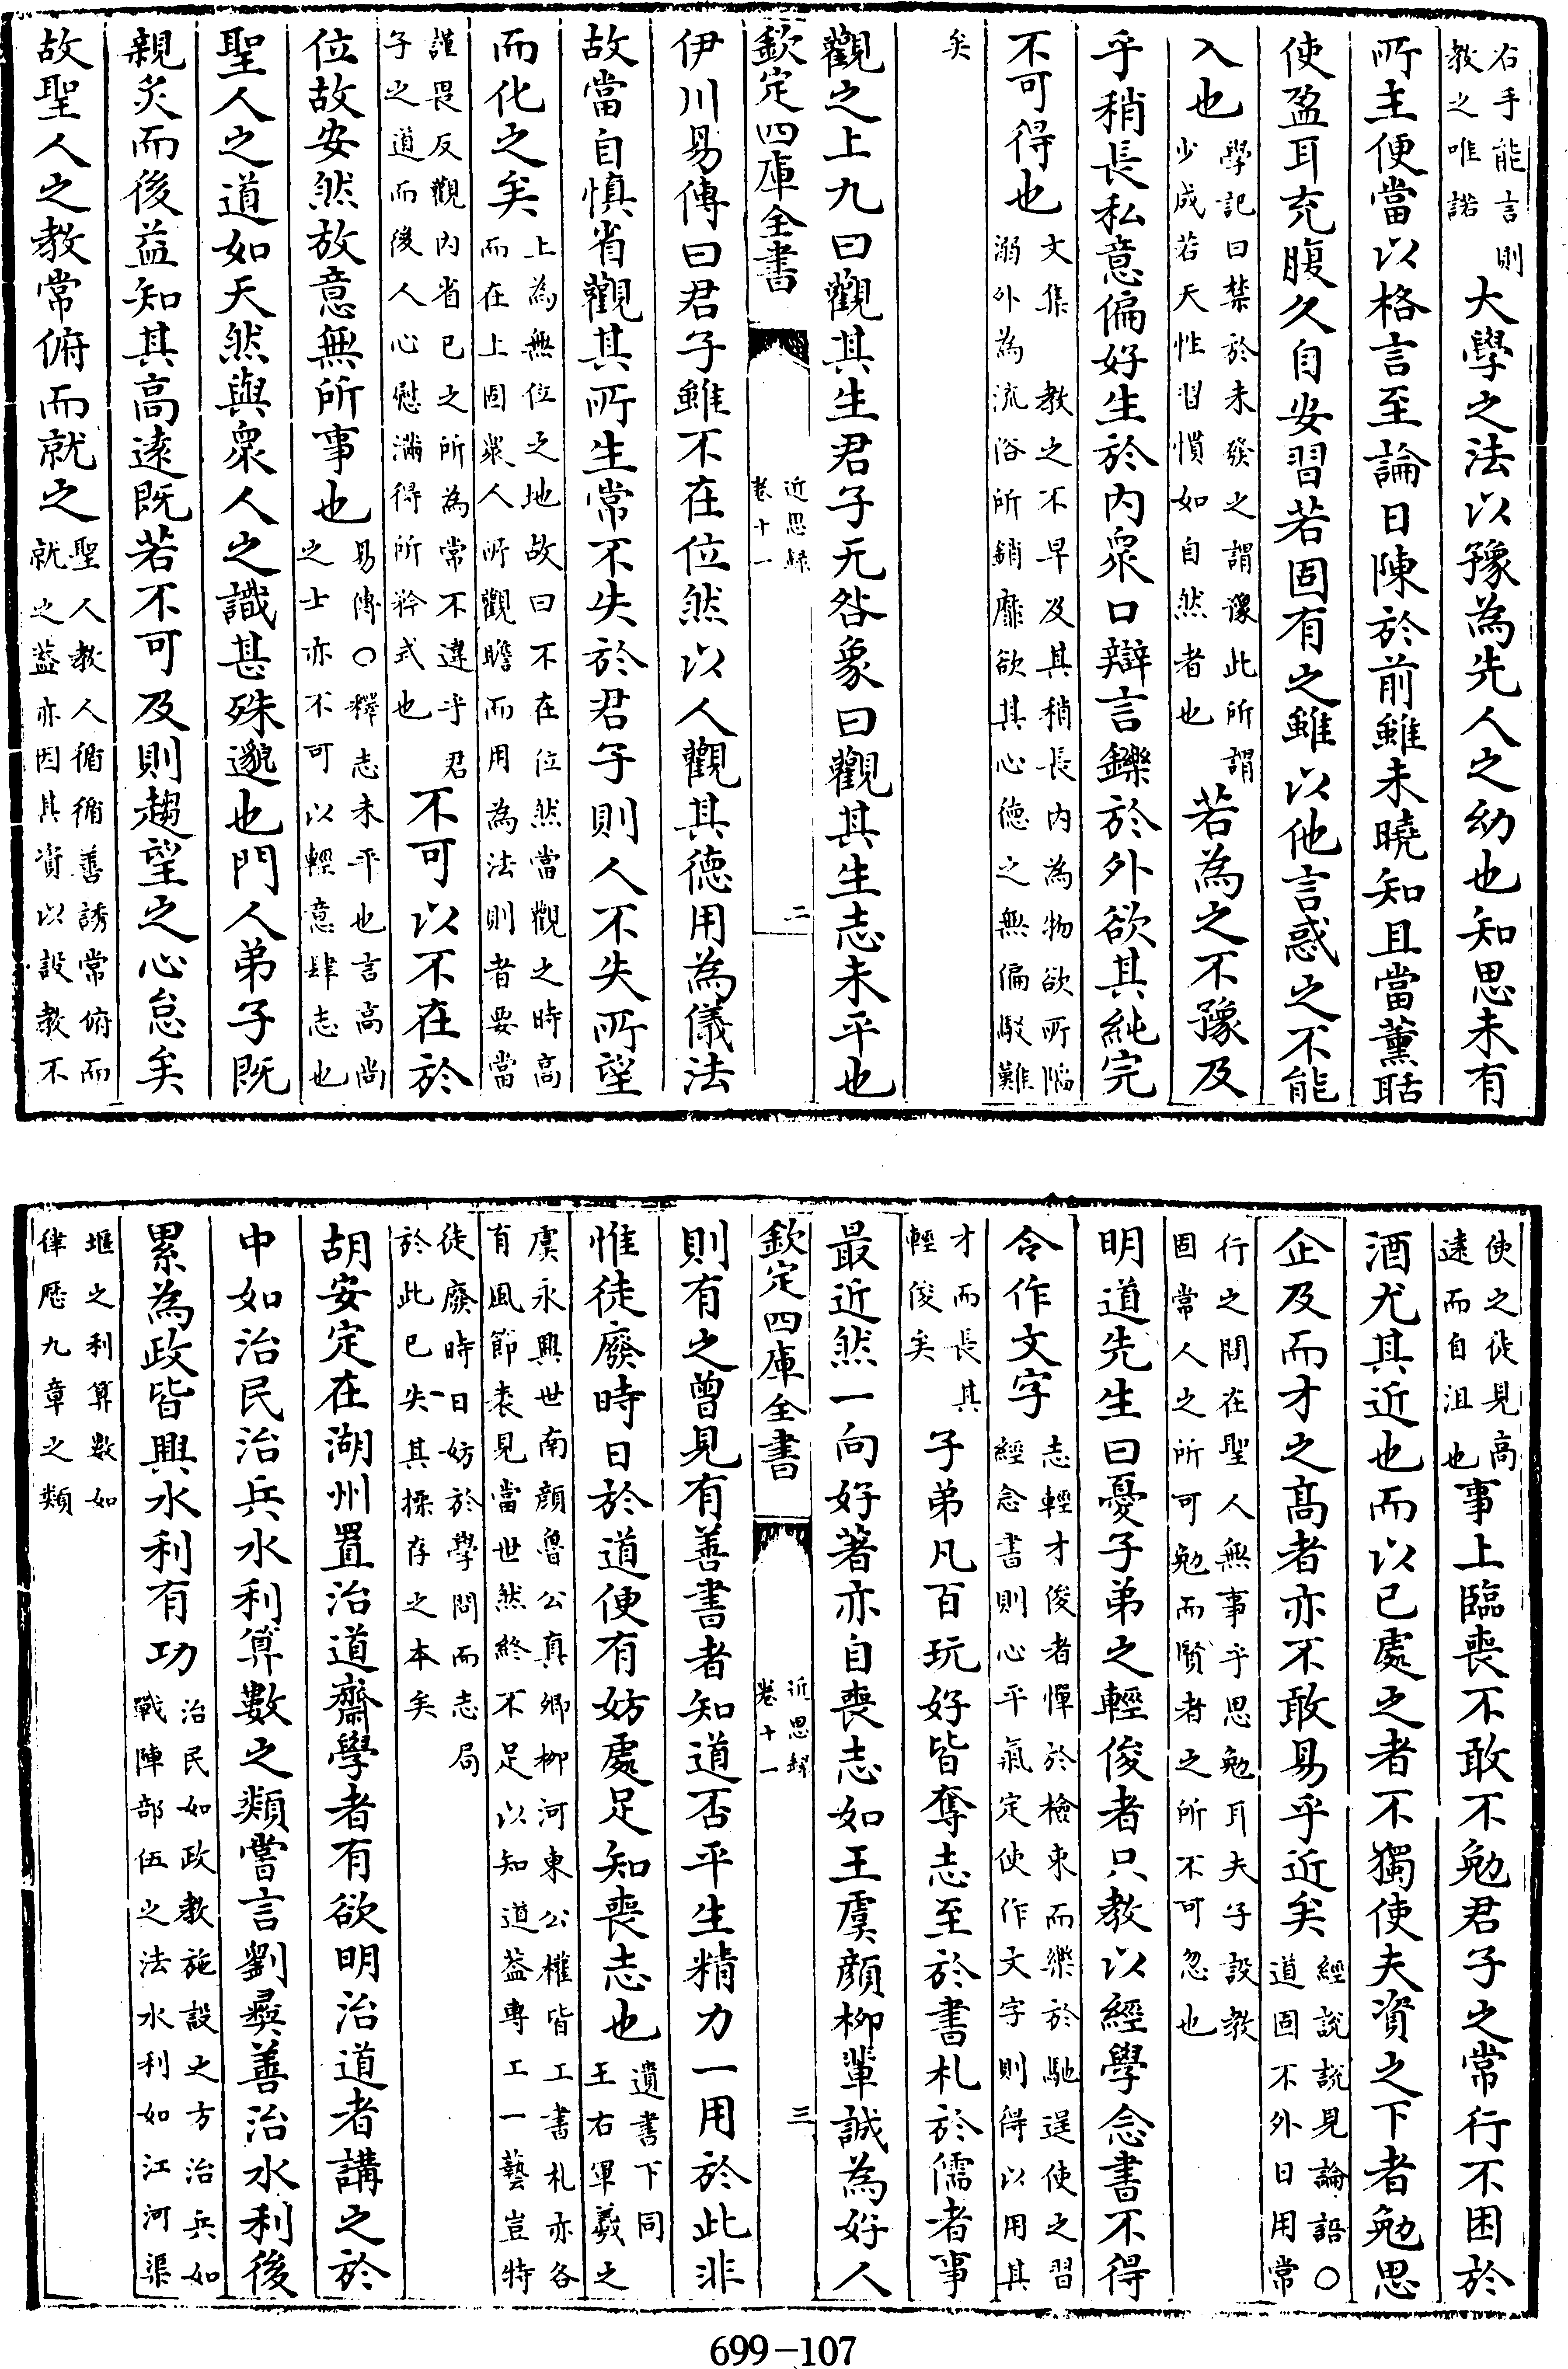 右手能言則教之唯諾大學之法以豫為先人之幼也知思未有
所主便當以格言至論日陳於前雖未曉知且當薰聒
使盈耳充腹久自安習若固有之雖以他言惑之不能
入也學記曰禁於未發之謂豫此所謂少成若天性習慣如自然者也若為之不豫及
乎稍長私意偏好生於內衆口辯言鑠於外欲其純完
不可得也文集 教之不早及其稍長內為物欲所陷溺外為流俗所銷靡欲其心德之無偏駁難
矣
觀之上九曰觀其生君子无咎象曰觀其生志未平也
欽定四庫全書 近思録 卷十一 二
伊川易傳曰君子雖不在位然以人觀其德用為儀法
故當自慎省觀其所生常不失於君子則人不失所望
而化之矣上為無位之地故曰不在位然當觀之時高而在上固衆人所觀瞻而用為法則者要當
謹畏反觀內省已之所為常不違乎君子之道而後人心慰滿得所矜式也不可以不在於
位故安然放意無所事也易傳○釋志未平也言高尚之士亦不可以輕意肆志也
聖人之道如天然與衆人之識甚殊邈也門人弟子既
親炙而後益知其高遠既若不可及則趨望之心怠矣
故聖人之教常俯而就之聖人教人循循善誘常俯而就之蓋亦因其資以設教不
使之徒見高遠而自沮也事上臨喪不敢不勉君子之常行不困於
酒尤其近也而以已處之者不獨使夫資之下者勉思
企及而才之高者亦不敢易乎近矣經說說見論語○道固不外日用常
行之間在聖人無事乎思勉耳夫子設教固常人之所可勉而賢者之所不可忽也
明道先生曰憂子弟之輕俊者只教以經學念書不得
令作文字志輕才俊者憚於檢束而樂於馳逞使之習經念書則心平氣定使作文字則得以用其
才而長其輕俊矣子弟凡百玩好皆奪志至於書札於儒者事
最近然一向好著亦自喪志如王虞顏柳輩誠為好人
欽定四庫全書 近思録 卷十一 三
則有之曾見有善書者知道否平生精力一用於此非
惟徒廢時日於道便有妨處足知喪志也遺書下同 王右軍羲之
虞永興世南顏魯公真卿柳河東公權皆工書札亦各有風節表見當世然終不足以知道蓋專工一藝豈特
徒廢時日妨於學問而志局於此已失其操存之本矣
胡安定在湖州置治道齋學者有欲明治道者講之於
中如治民治兵水利算數之類嘗言劉彞善治水利後
累為政皆興水利有功治民如政教施設之方治兵如戰陣部伍之法水利如江河渠
堰之利算數如律歷九章之類
699-107